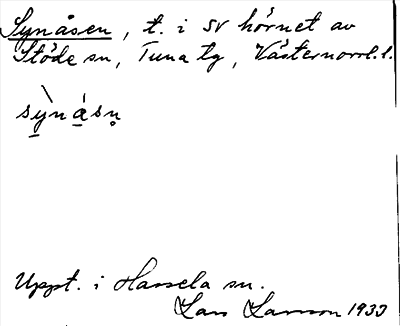 Synåsen, t. i SV hörnet av
Stöde sn, Tuna tg, Västernorrl. l.
sỳnása̱n
Uppt. i Hassela sn.
Lars Larsson 1933